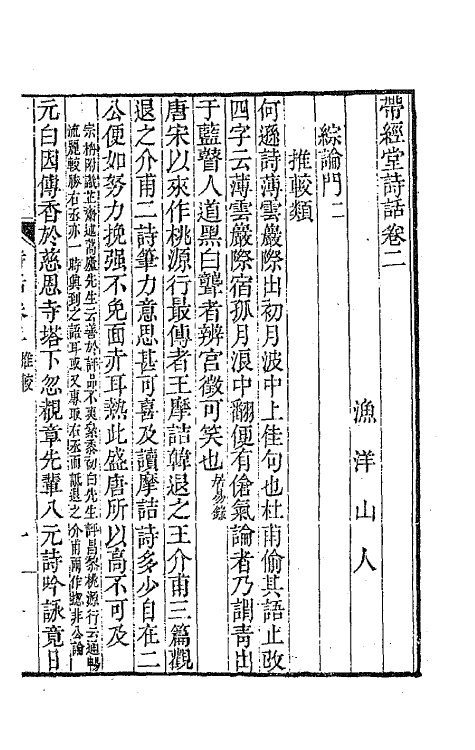 帶經堂詩話卷二
漁洋山人
綜論門二
推較類
何遜詩薄雲巖際出初月波中上佳句也杜甫偷其語止改
四字云薄雲巖際宿孤月浪中翻便有傖氣論者乃謂青出
于藍瞽人道黑白聾者辨宮徵可笑也居易錄
唐宋以來作桃源行最傳者王摩詰韓退之王介甫三篇觀
退之介甫二詩筆力意思甚可喜及讀摩詰詩多少自在二
公便如努力挽强不免面赤耳熱此盛唐所以高不可及
宗柟附識芷齋述蒿廬先生云善於評品不爽絫黍初白先生評昌黎桃源行云通暢
流麗較勝右丞亦一時興到之語耳或又專取右丞而詆退之介甫兩作摠非公論
元白因傳香於慈恩寺塔下忽覩章先輩八元詩吟詠竟日